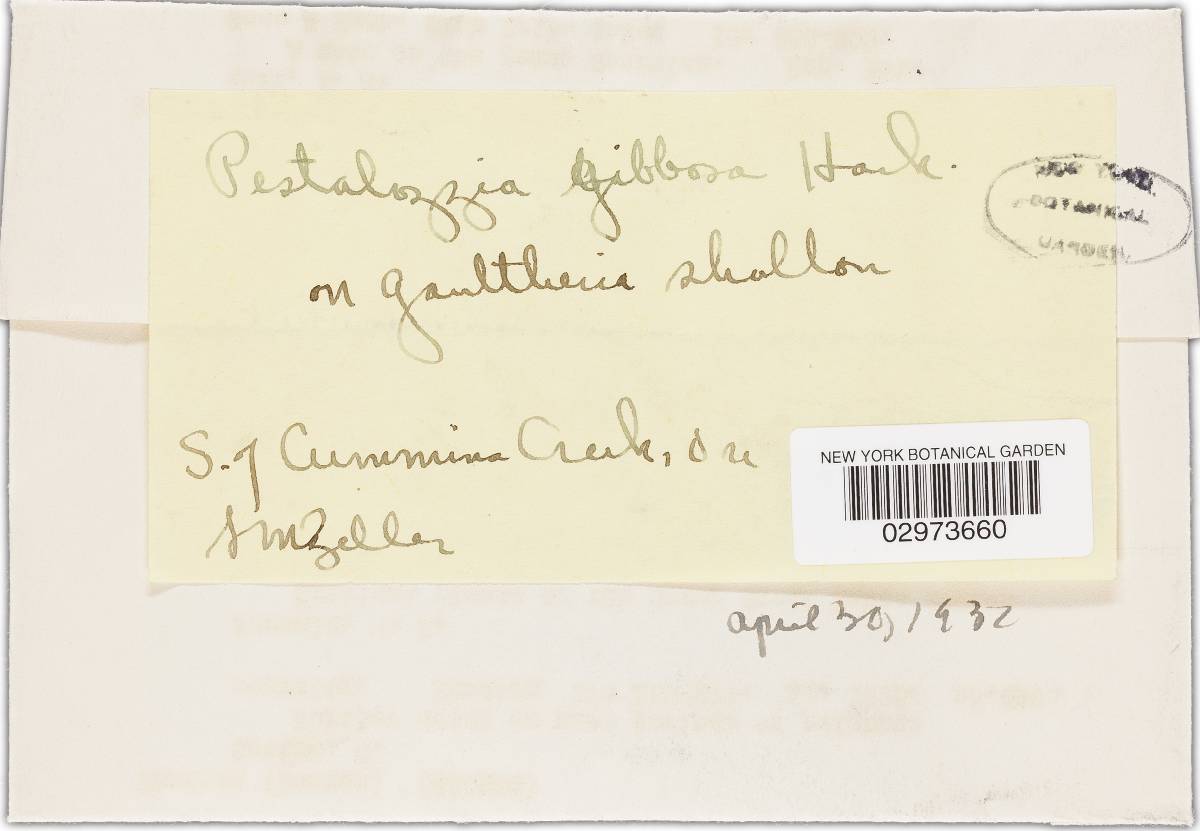 Pestalozzia gibbosa Hark.
NEW YORK
BOTANICAL
GARDEN
on Gaultheria shallon
S. of Cummins Creek, Ore
SMZeller
NEW YORK BOTANICAL GARDEN
02973660
april 30, 1932